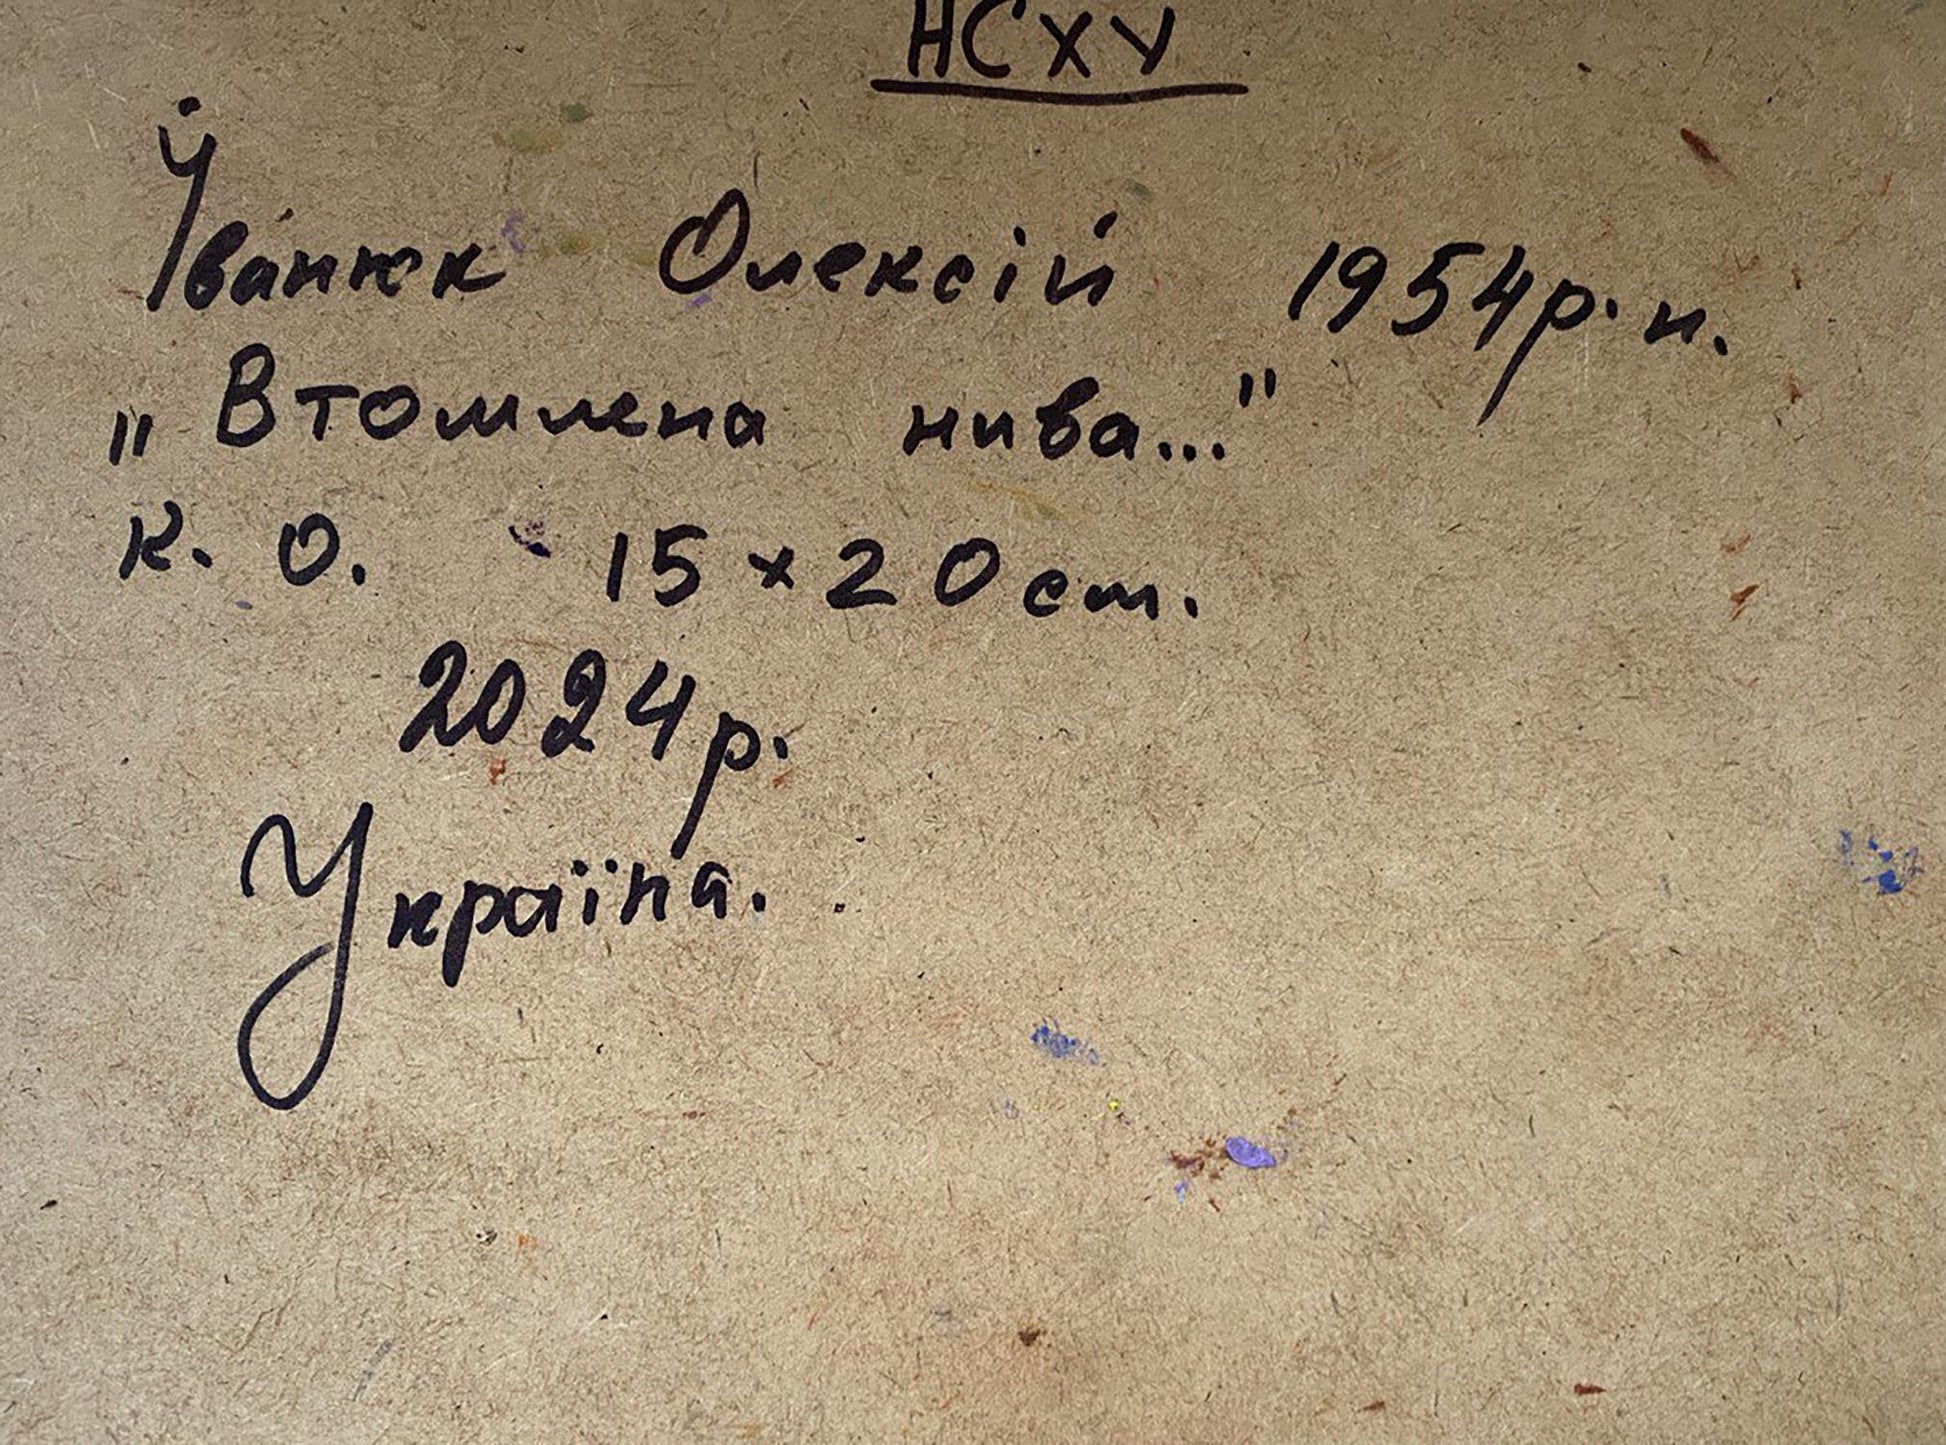 НСХУ
Іванюк Олексій 1954р.н.
„Втомлена нива..."
К. О. 15×20 см.
2024р.
Україна.